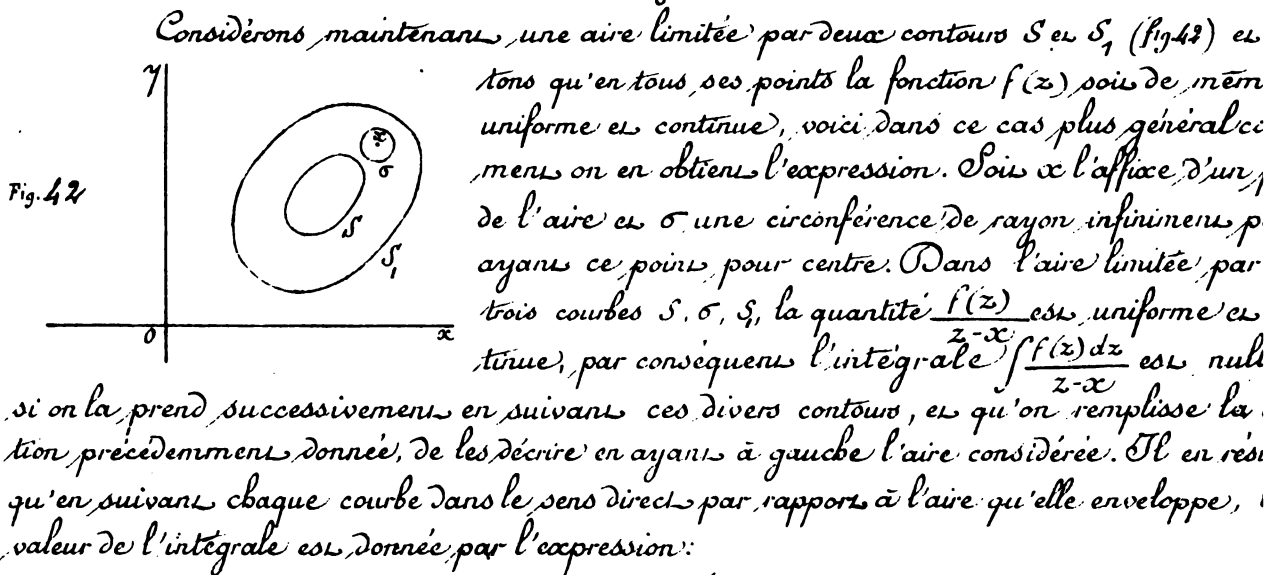 Considérons maintenant une aire limitée par deux contours S et S₁ (fig 42) et
tons qu'en tous ses points la fonction f(z) soit de mêm
uniforme et continue, voici dans ce cas plus général co
ment on en obtient l'expression. Soit x l'affixe d'un p
de l'aire et σ une circonférence de rayon infiniment p
ayant ce point pour centre. Dans l'aire limitée par
trois courbes S, σ, S₁, la quantité f(z)/(z-x) est uniforme et
tinue, par conséquent l'intégrale ∫ f(z) dz/(z-x) est null
si on la prend successivement en suivant ces divers contours, et qu'on remplisse la
tion précédemment donnée, de les décrire en ayant à gauche l'aire considérée. Il en rés
qu'en suivant chaque courbe dans le sens direct par rapport à l'aire qu'elle enveloppe,
valeur de l'intégrale est donnée par l'expression:
Fig. 42
y
x
σ
S
S₁
0
x